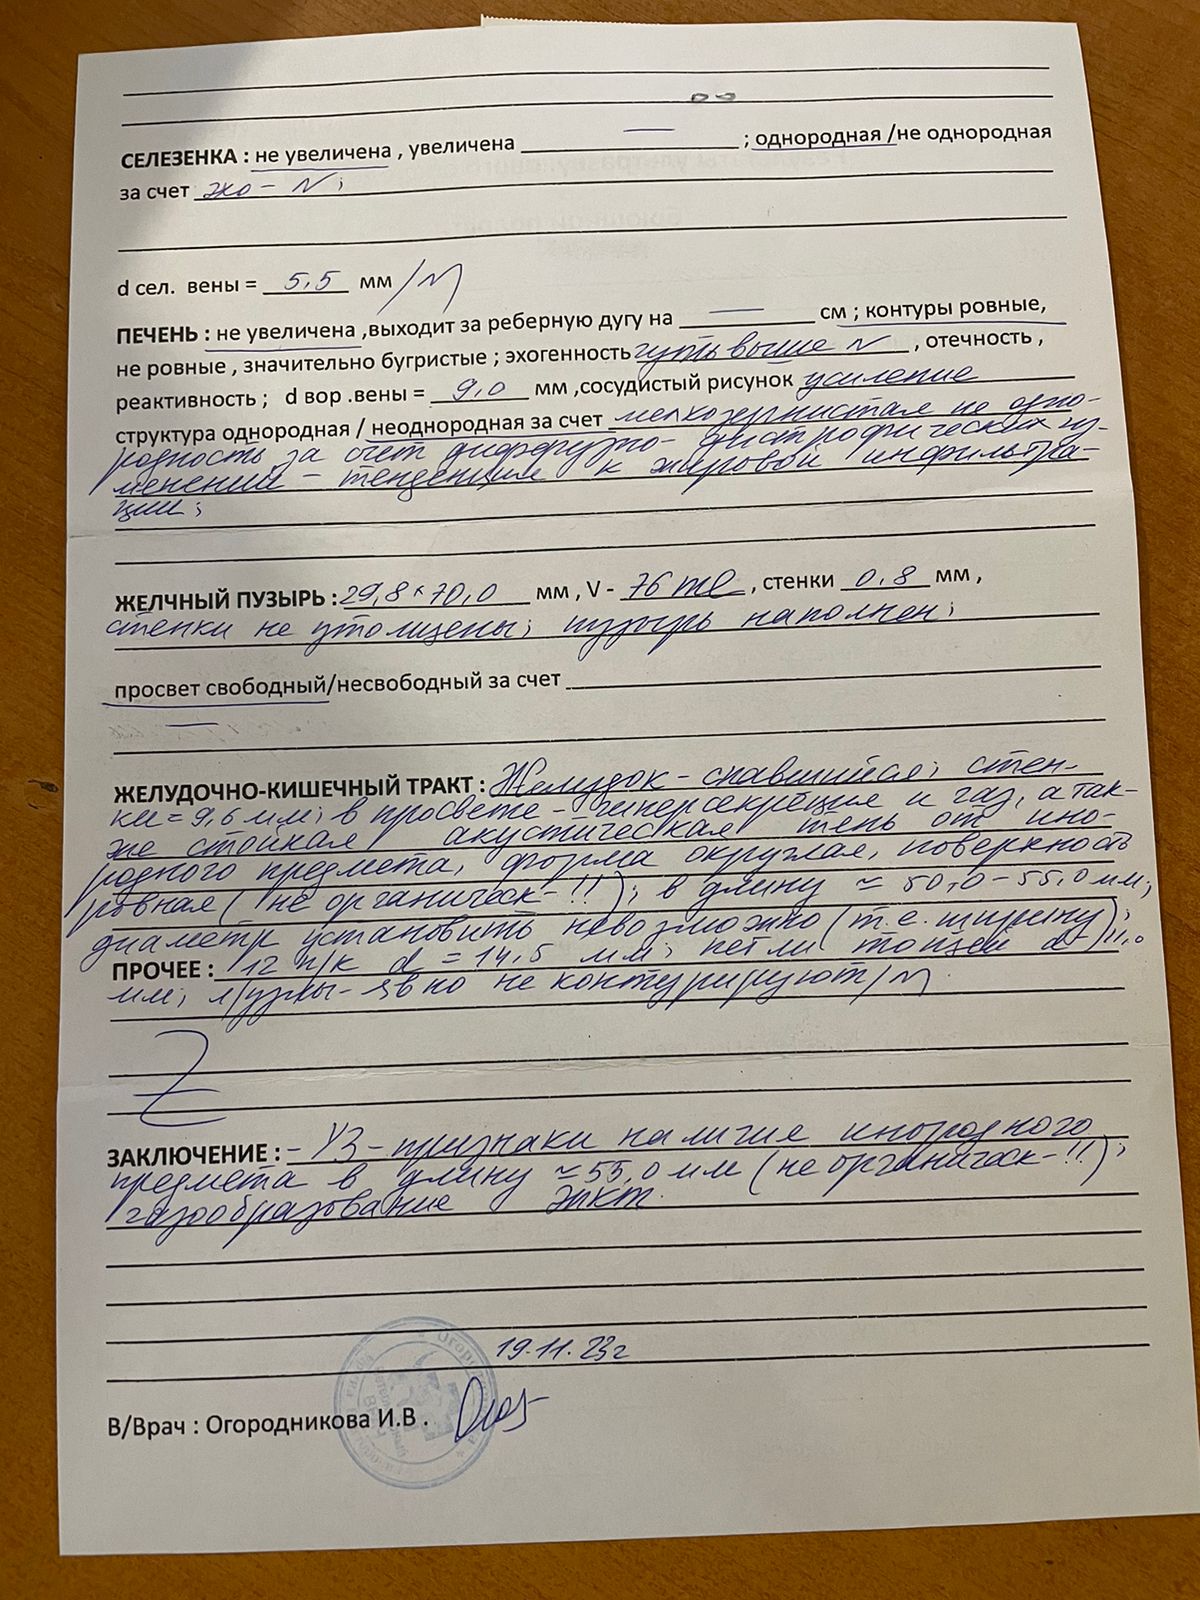 СЕЛЕЗЕНКА : не увеличена , увеличена — ; однородная /не однородная
за счет эхо - N ;
d сел. вены = 5,5 мм / N
ПЕЧЕНЬ : не увеличена ,выходит за реберную дугу на — см ; контуры ровные,
не ровные , значительно бугристые ; эхогенность чуть выше N , отечность ,
реактивность ; d вор .вены = 9,0 мм ,сосудистый рисунок усиление
структура однородная / неоднородная за счет мелкозернистая не одно-
родность за счет диффузно- дистрофических из-
менений - тенденция к жировой инфильтра-
ции;
ЖЕЛЧНЫЙ ПУЗЫРЬ : 29,8 × 70,0 мм , V - 76 ml , стенки 0,8 мм ,
стенки не утолщены; пузырь наполнен;
просвет свободный/несвободный за счет
—
ЖЕЛУДОЧНО-КИШЕЧНЫЙ ТРАКТ : Желудок - спавшийся; стен-
ки = 9,6 мм; в просвете - гиперсекреция и газ, а так-
же стойкая акустическая тень от ино-
родного предмета, форма округлая, поверхность
ровная (не органическ- !!); в длину ≈ 50,0 - 55,0 мм;
диаметр установить невозможно (т.е. ширину);
ПРОЧЕЕ : 12 п/к d = 14,5 мм; петли тощей d - 11,0
мм; л/узлы - явно не контурируют / N
Z
ЗАКЛЮЧЕНИЕ : - УЗ - признаки наличие инородного
предмета в длину ≈ 55,0 мм (не органическ- !!);
газообразование
19.11.23г
В/Врач : Огородникова И.В .